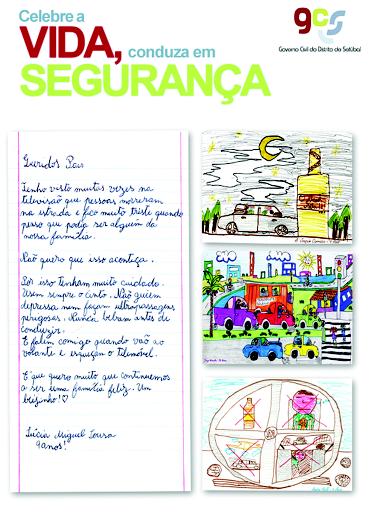 Celebre a
VIDA, conduza em
SEGURANÇA
gcs
Governo Civil do Distrito de Setúbal
Queridos Pais
Tenho visto muitas vezes na
televisão que pessoas morreram
na estrada e fico muito triste quando
penso que podia ser alguém da
nossa família.
Não quero que isso aconteça.
Por isso tenham muito cuidado.
Usem sempre o cinto. Não guiem
depressa nem façam ultrapassagens
perigosas. Nunca bebam antes de
conduzir.
E falem comigo quando vão ao
volante e esqueçam o telemóvel.
É que quero muito que continuemos
a ser uma família feliz. Um
beijinho!
Lúcia Miguel Sousa
9 anos!